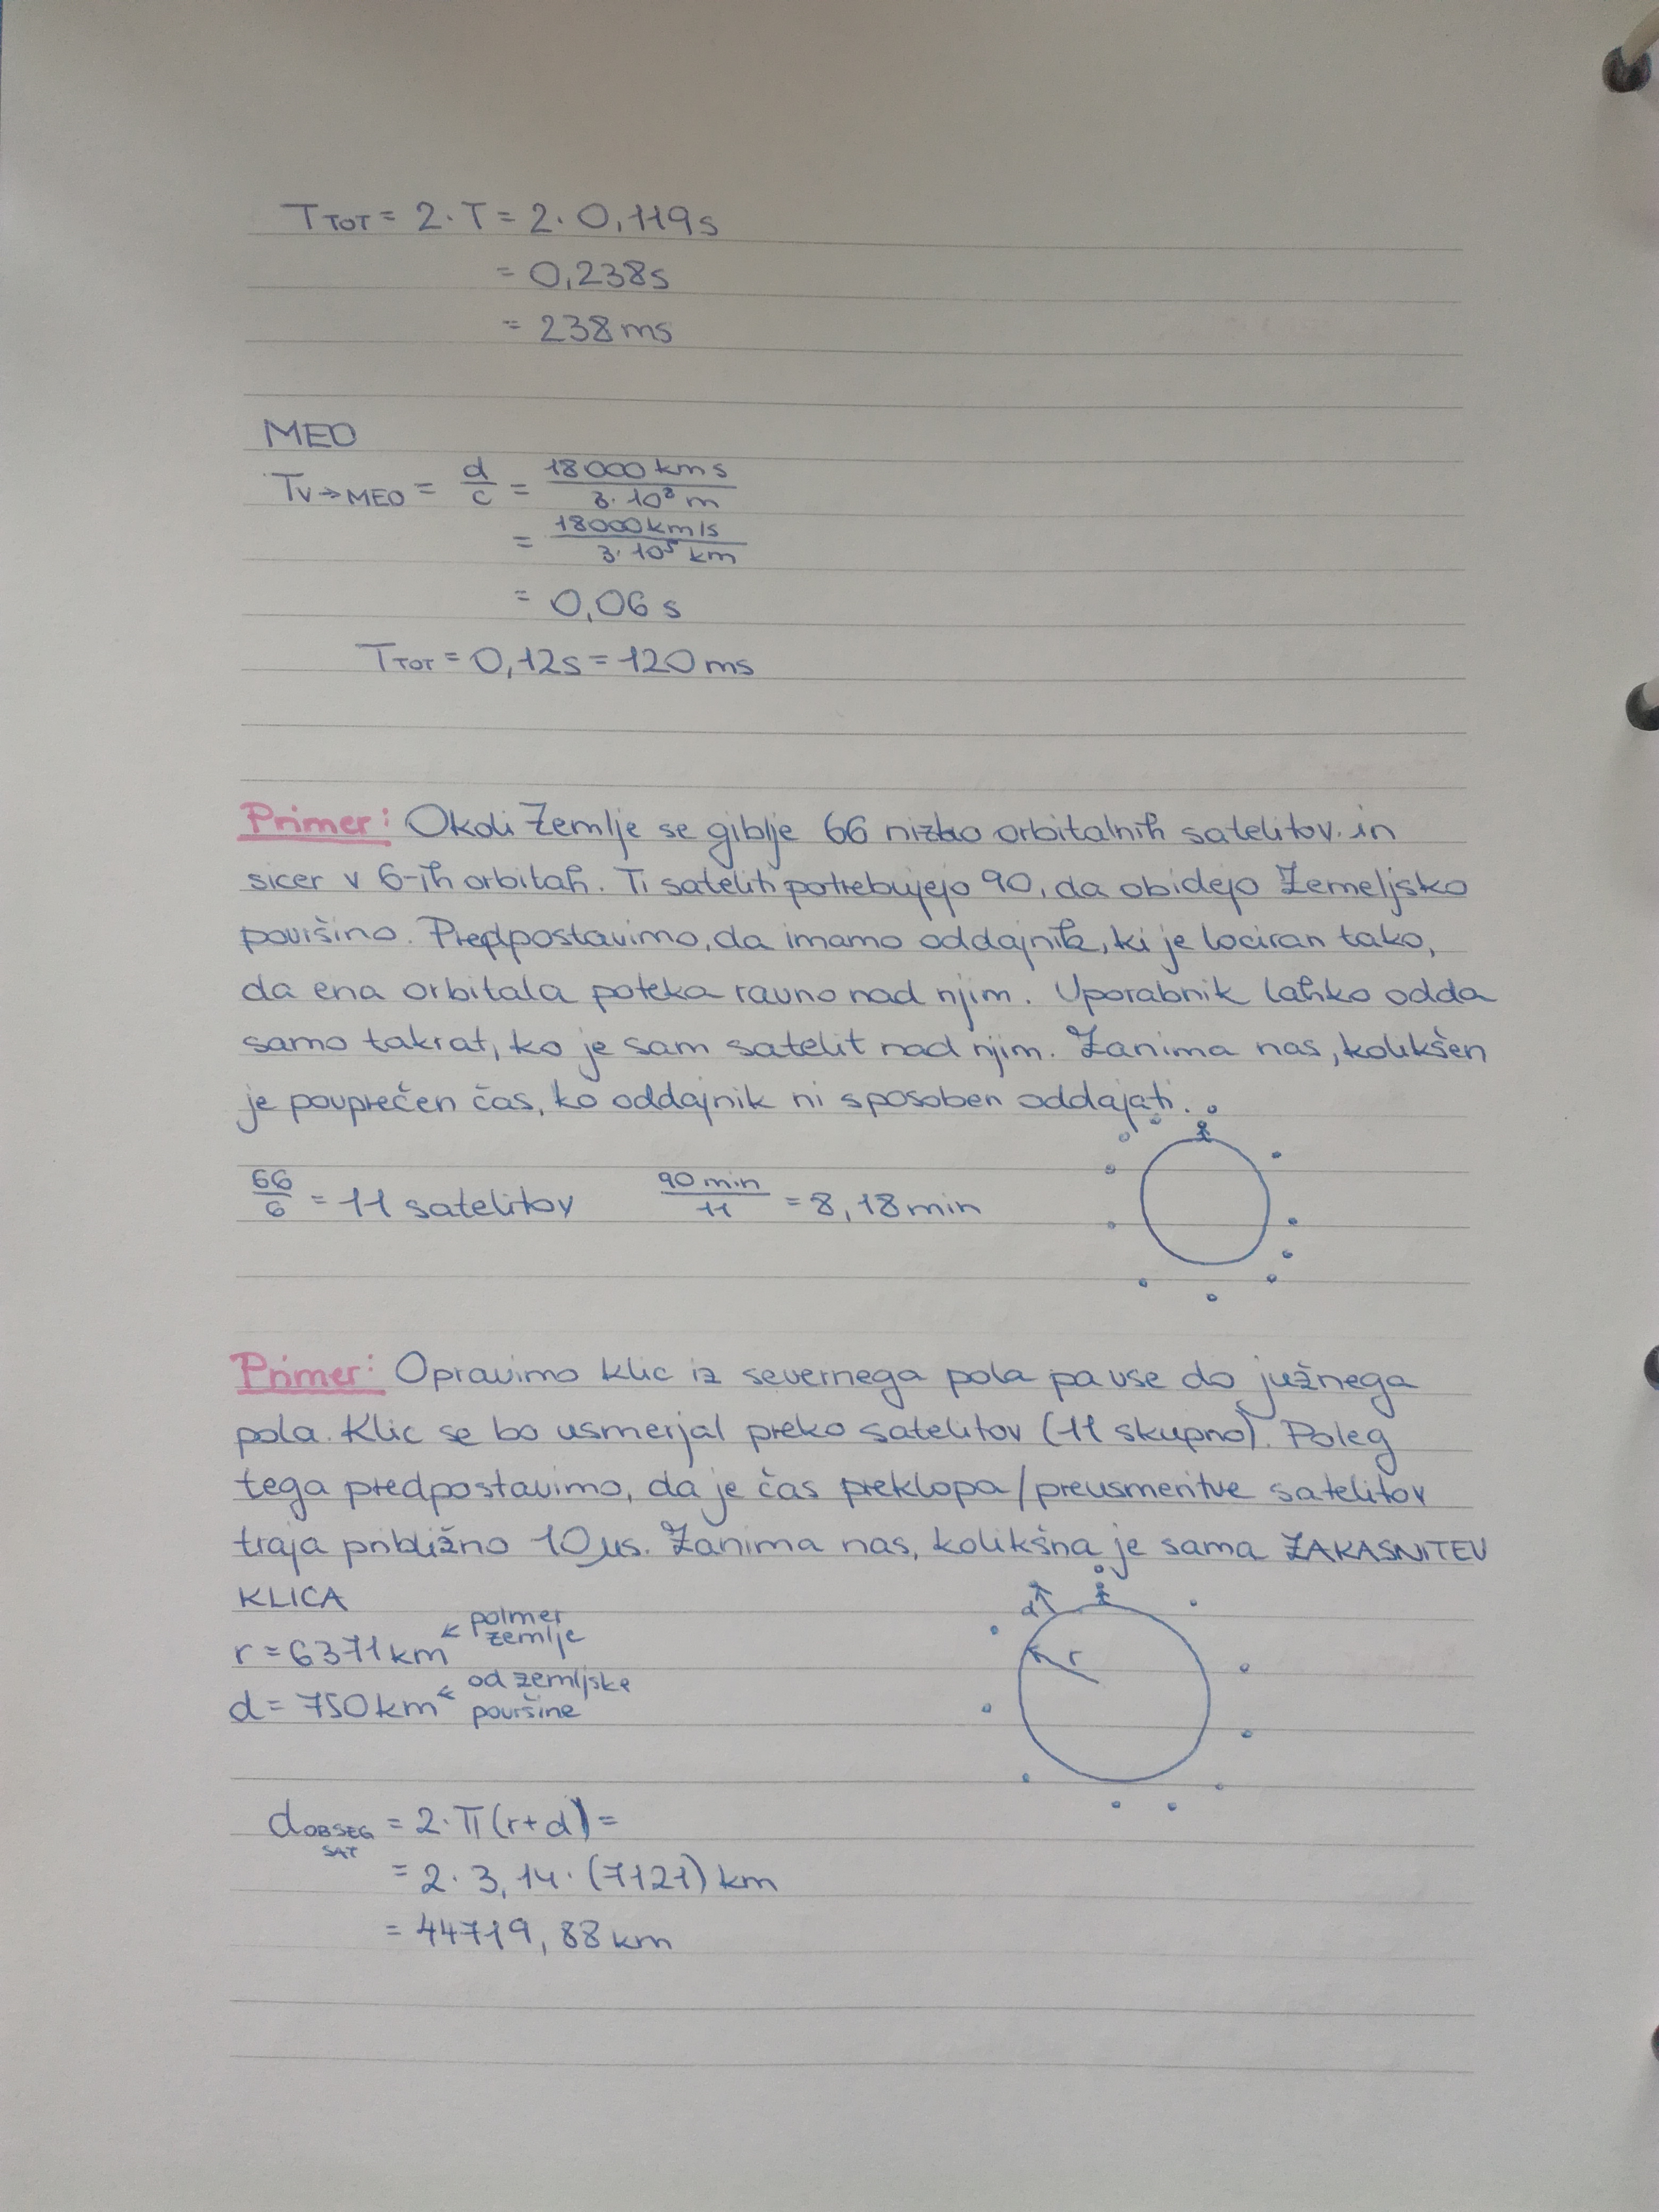 T TOT = 2 · T = 2 · 0,119s
= 0,238s
= 238 ms
MEO
T V→MEO = d/c = 18000 km s / 3 · 10⁸ m
= 18000 km/s / 3 · 10⁵ km
= 0,06 s
T TOT = 0,12s = 120 ms
Primer: Okoli Zemlje se giblje 66 nizko orbitalnih satelitov in
sicer v 6-ih orbitah. Ti sateliti potrebujejo 90, da obidejo Zemeljsko
površino. Predpostavimo, da imamo oddajnik, ki je lociran tako,
da ena orbitala poteka ravno nad njim. Uporabnik lahko odda
samo takrat, ko je sam satelit nad njim. Zanima nas, kolikšen
je povprečen čas, ko oddajnik ni sposoben oddajati.
66/6 = 11 satelitov 90 min / 11 = 8,18 min
Primer: Opravimo klic iz severnega pola pa vse do južnega
pola. Klic se bo usmerjal preko satelitov (11 skupno). Poleg
tega predpostavimo, da je čas preklopa/preusmeritve satelitov
traja približno 10 µs. Zanima nas, kolikšna je sama ZAKASNITEV
KLICA
r = 6371 km ← polmer zemlje
d = 750 km ← od zemljske površine
d
r
d OBSEG SAT = 2 · π (r + d) =
= 2 · 3,14 · (7121) km
= 44719,88 km